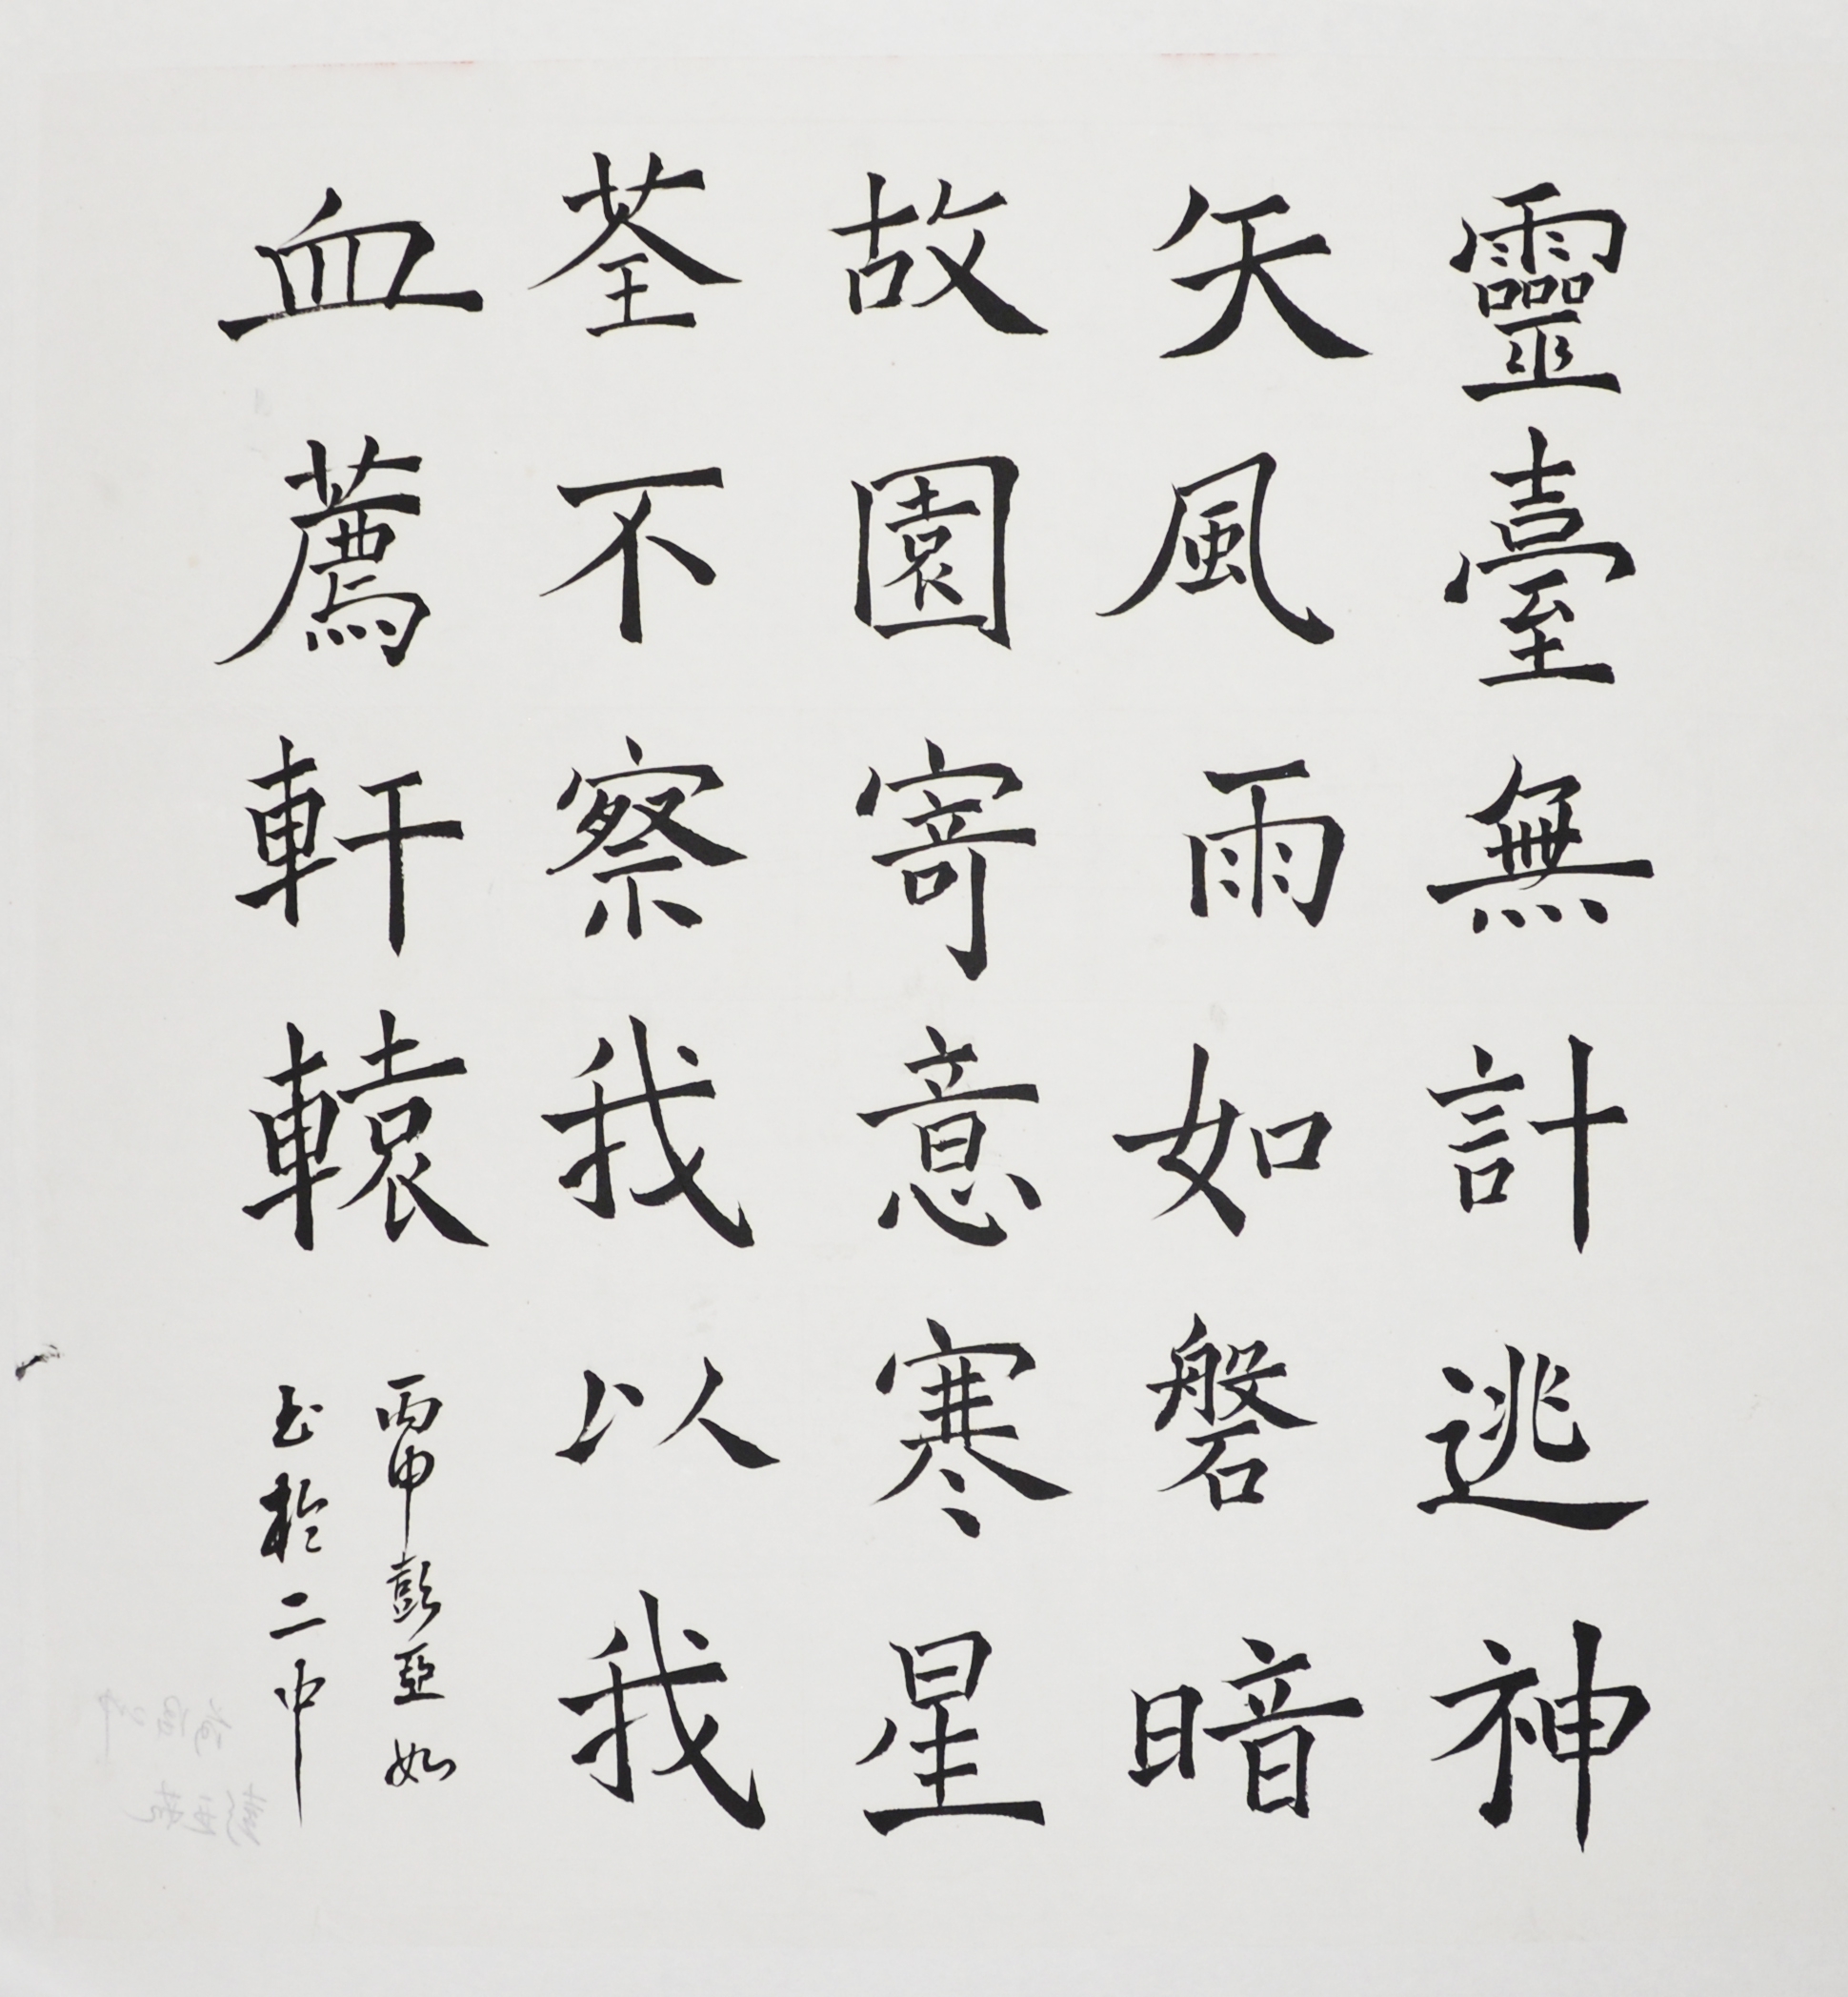 靈臺無計逃神
矢風雨如磐暗
故園寄意寒星
荃不察我以我
血薦軒轅
丙申彭亞如
书於二中